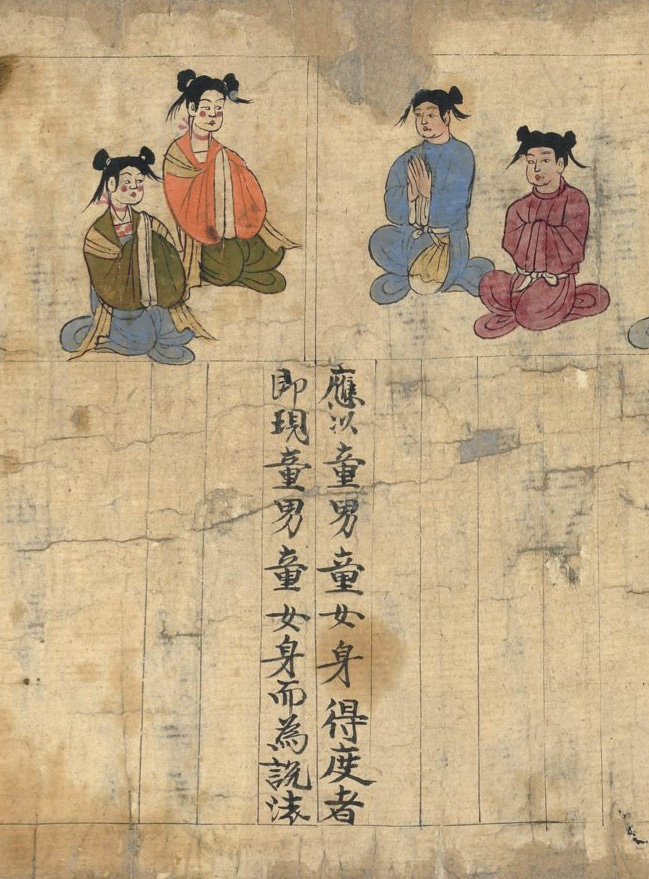 應以童男童女身得度者
即現童男童女身而為説法